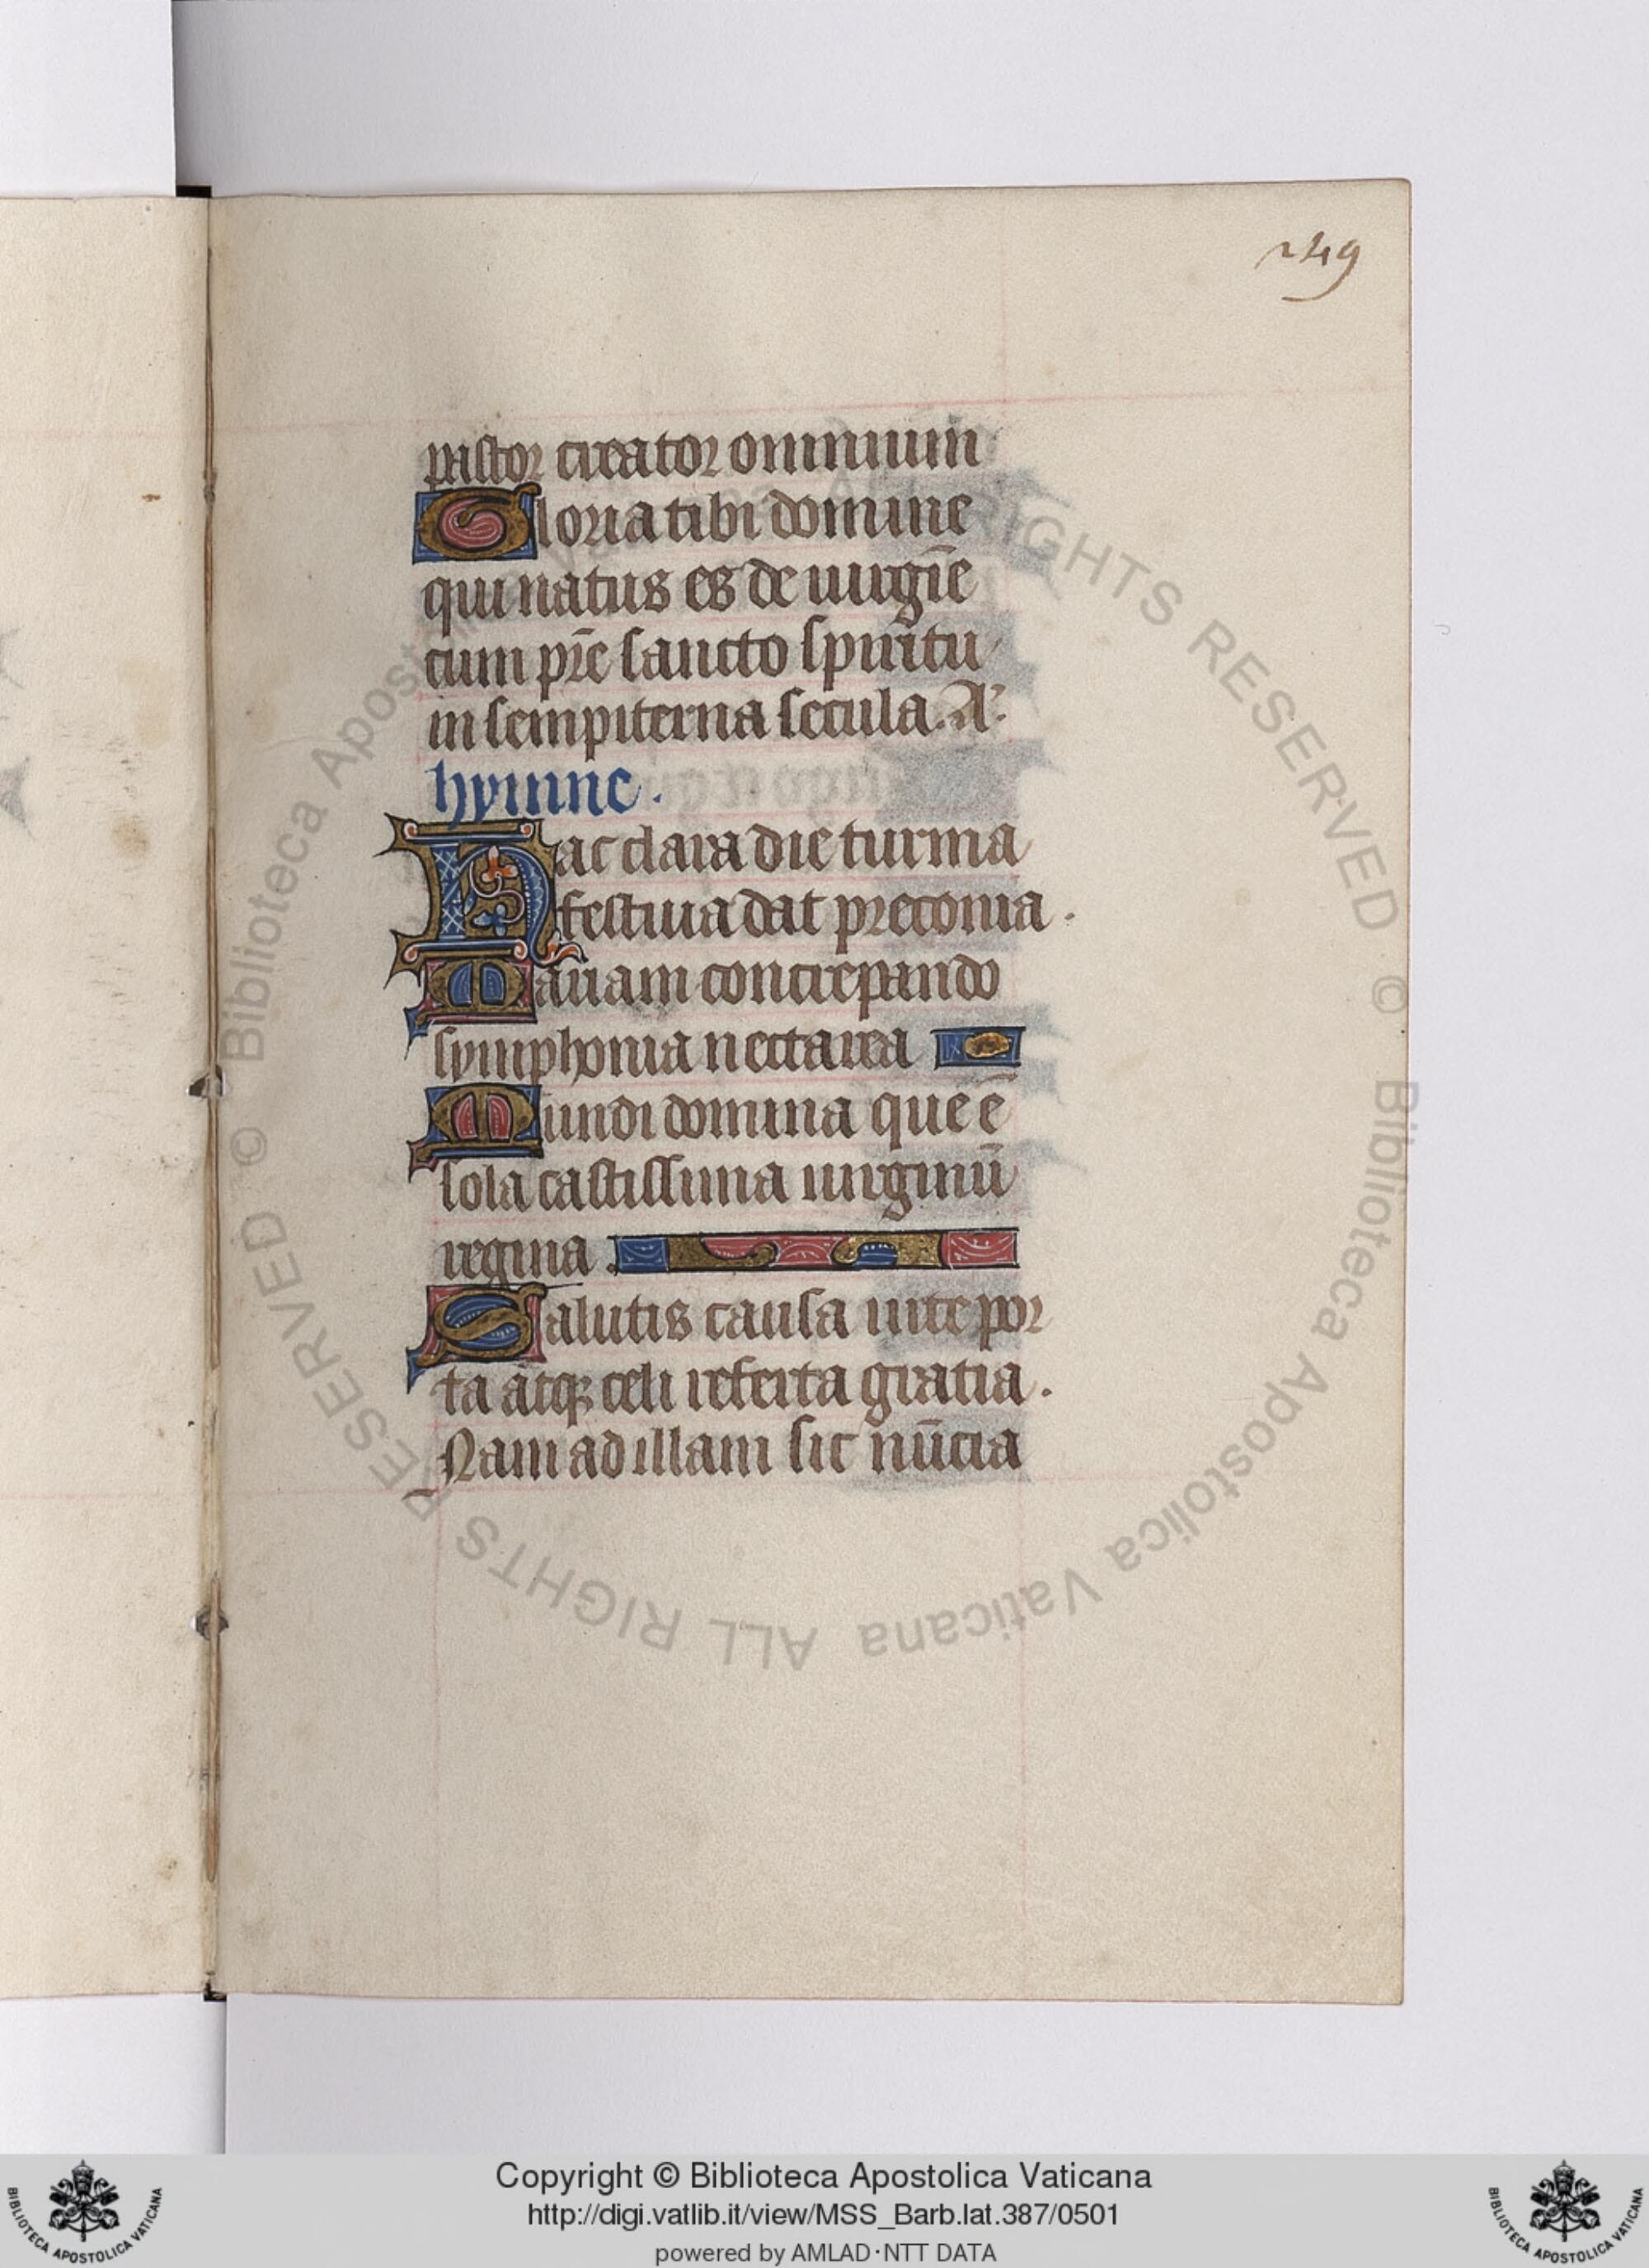 249
pastor creator omnium
Gloria tibi domine
qui natus es de uirgīe
cum pr̄e sancto spiritu
in sempiterna secula. A'.
hymne.
Hac clara die turma
festiua dat preconia.
Mariam concrepando
symphonia nectarea
Mundi domina que ē
sola castissima uirginū
regina.
Salutis causa uite por
ta atqꝫ celi referta gratia.
Nam ad illam sic nūcia
© Biblioteca Apostolica Vaticana ALL RIGHTS RESERVED
Copyright © Biblioteca Apostolica Vaticana
http://digi.vatlib.it/view/MSS_Barb.lat.387/0501
powered by AMLAD·NTT DATA
BIBLIOTECA APOSTOLICA VATICANA
BIBLIOTECA APOSTOLICA VATICANA